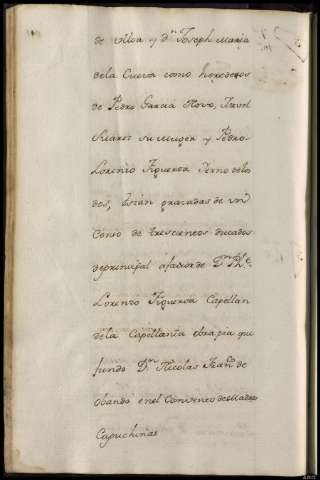 de Ulloa y Dn. Joseph Maria
dela Cueva como herederos
de Pedro Garcia Novo, Isavel
Suarez su muger y Pedro
Lorenzo Figueroa Yerno delos
dos, están gravadas de un
Censo de trescientos ducados
deprincipal afavor de Dn.
Lorenzo Figueroa Capellan
dela Capellania ebra pia que
fundo Dn. Nicolas Franco. de
Obando enel Convento de Madres
Capuchinas